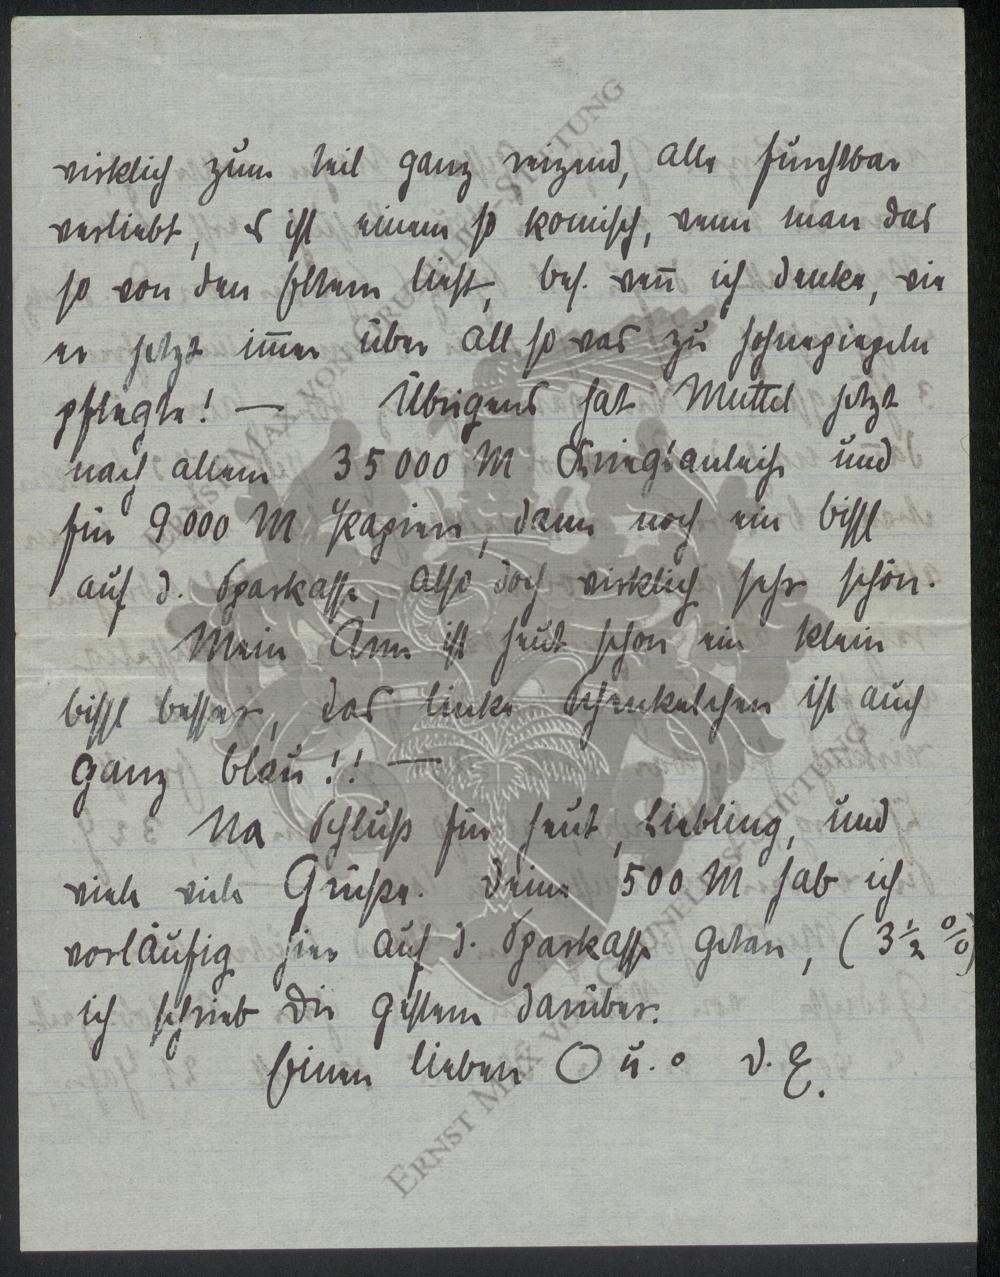 wirklich zum teil ganz reizend, alle furchtbar
verliebt, es ist einem so komisch, wenn man das
so von den Eltern liest, bes. weñ ich denke, wie
er jetzt im̅er über all so was zu
pflegte! — Übrigens hat Muttel jetzt
nach allem 35000 M Kriegsanleihe und
für 9000 M Papiere, dann noch ein bissl
auf d. Sparkasse, also doch wirklich sehr schön.
Mein Arm ist heut schon ein klein
bissl besser, das linke Schenkelchen ist auch
ganz blau!! —
Na Schluß für heut, Liebling, und
viele viele Grüße. Deine 500 M hab ich
vorläufig hier auf d. Sparkasse getan, (3½ %)
ich schrieb Dir gestern darüber.
Einen lieben O u. o v. E.
ERNST MAX VON GRUNELIUS-STIFTUNG
ERNST MAX VON GRUNELIUS-STIFTUNG